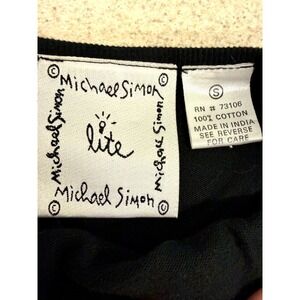 © Michael Simon ©
Michael Simon
lite
Michael Simon
© Michael Simon ©
S
RN # 73106
100% COTTON
MADE IN INDIA
SEE REVERSE
FOR CARE